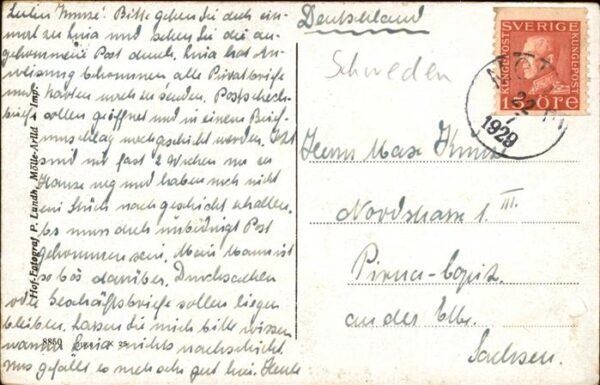 Lieber Knirse! Bitte gehen Sie doch ein-
mal zu Luia und sehen Sie die an-
gekommene Post durch. Luia hat An-
weisung bekommen alle Privatbriefe
und Karten nachzusenden. Postscheck-
briefe sollen geöffnet und in einem Brief-
umschlag nachgeschickt werden. Jetzt
sind wir fast 2 Wochen von zu
Hause weg und haben noch nicht
ein Stück nachgeschickt erhalten.
Es muss doch unbedingt Post
gekommen sein. Mein Mann ist
so bös darüber. Drucksachen
oder Geschäftsbriefe sollen liegen
bleiben. Lassen Sie mich bitte wissen
warum Luia nichts nachschickt.
Uns gefällt es noch sehr gut hier. Heute
Hof-Fotograf P. Lundh, Mölle-Arild Imp.
8859
Deutschland
Schweden
SVERIGE
KUNGSPOST
KUNGSPOST
15 ÖRE
1929
Herrn Max Knirse
Nordstrasse 1 III.
Pirna-Copitz
an der Elbe.
Sachsen.